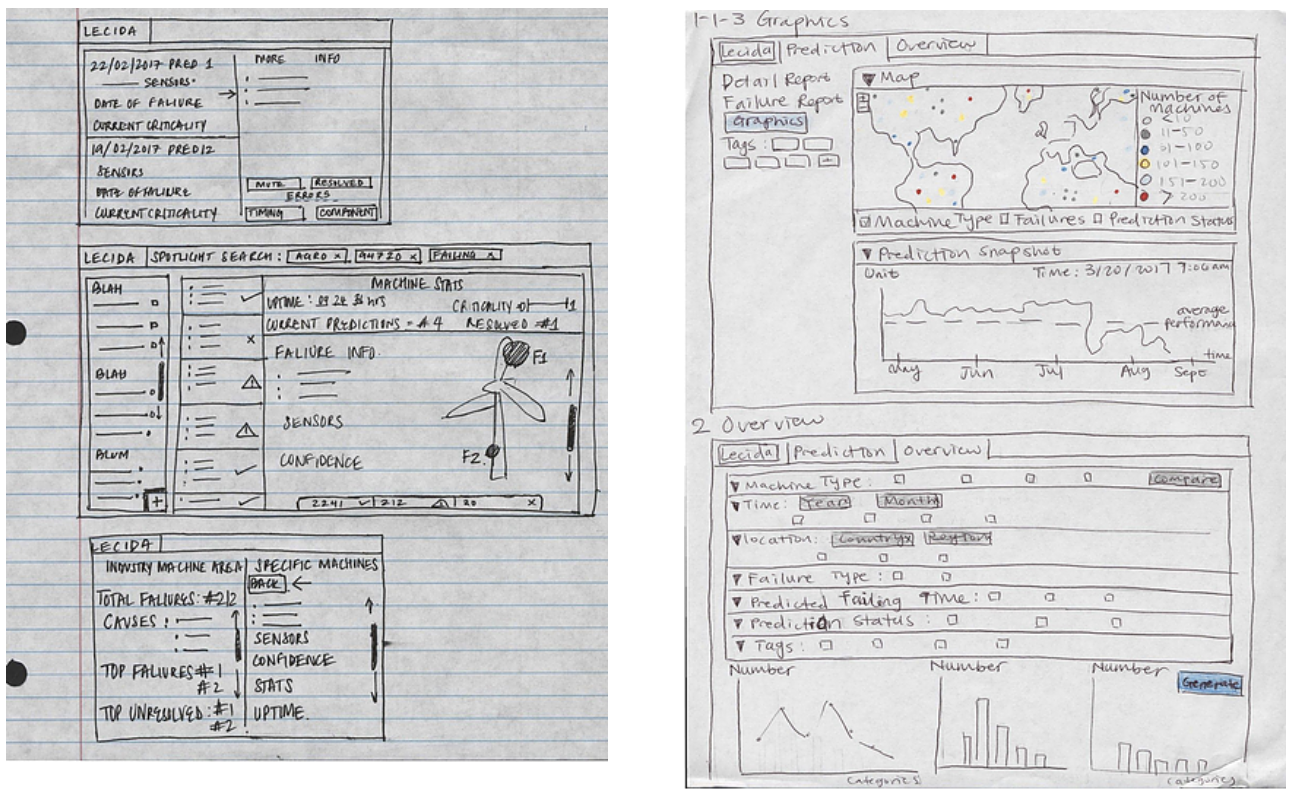 LECIDA
22/02/2017 PRED 1
SENSORS
DATE OF FALIURE
CURRENT CRITICALITY
19/02/2017 PRED12
SENSORS
DATE OF FALIURE
CURRENT CRITICALITY
MORE INFO
MUTE RESOLVED
ERRORS
TIMING COMPONENT
LECIDA SPOTLIGHT SEARCH : AGRO x 94720 x FAILING x
BLAH
BLAH
BLUM
+
MACHINE STATS
UPTIME : 89 24 36 hrs
CRITICALITY 0 1
CURRENT PREDICTIONS = #4 RESOLVED = #1
FALIURE INFO.
SENSORS
CONFIDENCE
F1
F2.
2241 ✓ 212 ⚠ 20 x
LECIDA
INDUSTRY MACHINE AREA
TOTAL FALIURES: #212
CAUSES :
TOP FALIURES #1
#2
TOP UNRESOLVED : #1
#2
SPECIFIC MACHINES
BACK ←
SENSORS
CONFIDENCE
STATS
UPTIME.
1-1-3 Graphics
Lecida Prediction Overview
Detail Report
Failure Report
Graphics
Tags :
▼ Map
Number of
machines
<10
11-50
51-100
101-150
151-200
>200
Machine Type Failures Prediction Status
▼ Prediction Snapshot
Unit
Time : 3/20/2017 9:06am
average
performan
time
May Jun Jul Aug Sept
2 Overview
Lecida Prediction Overview
▼ Machine Type :
Compare
▼ Time: Year Month
▼ location: Country Region
▼ Failure Type :
▼ Predicted Failing Time :
▼ Prediction Status :
▼ Tags :
Generate
Number
categories
Number
Number
categories